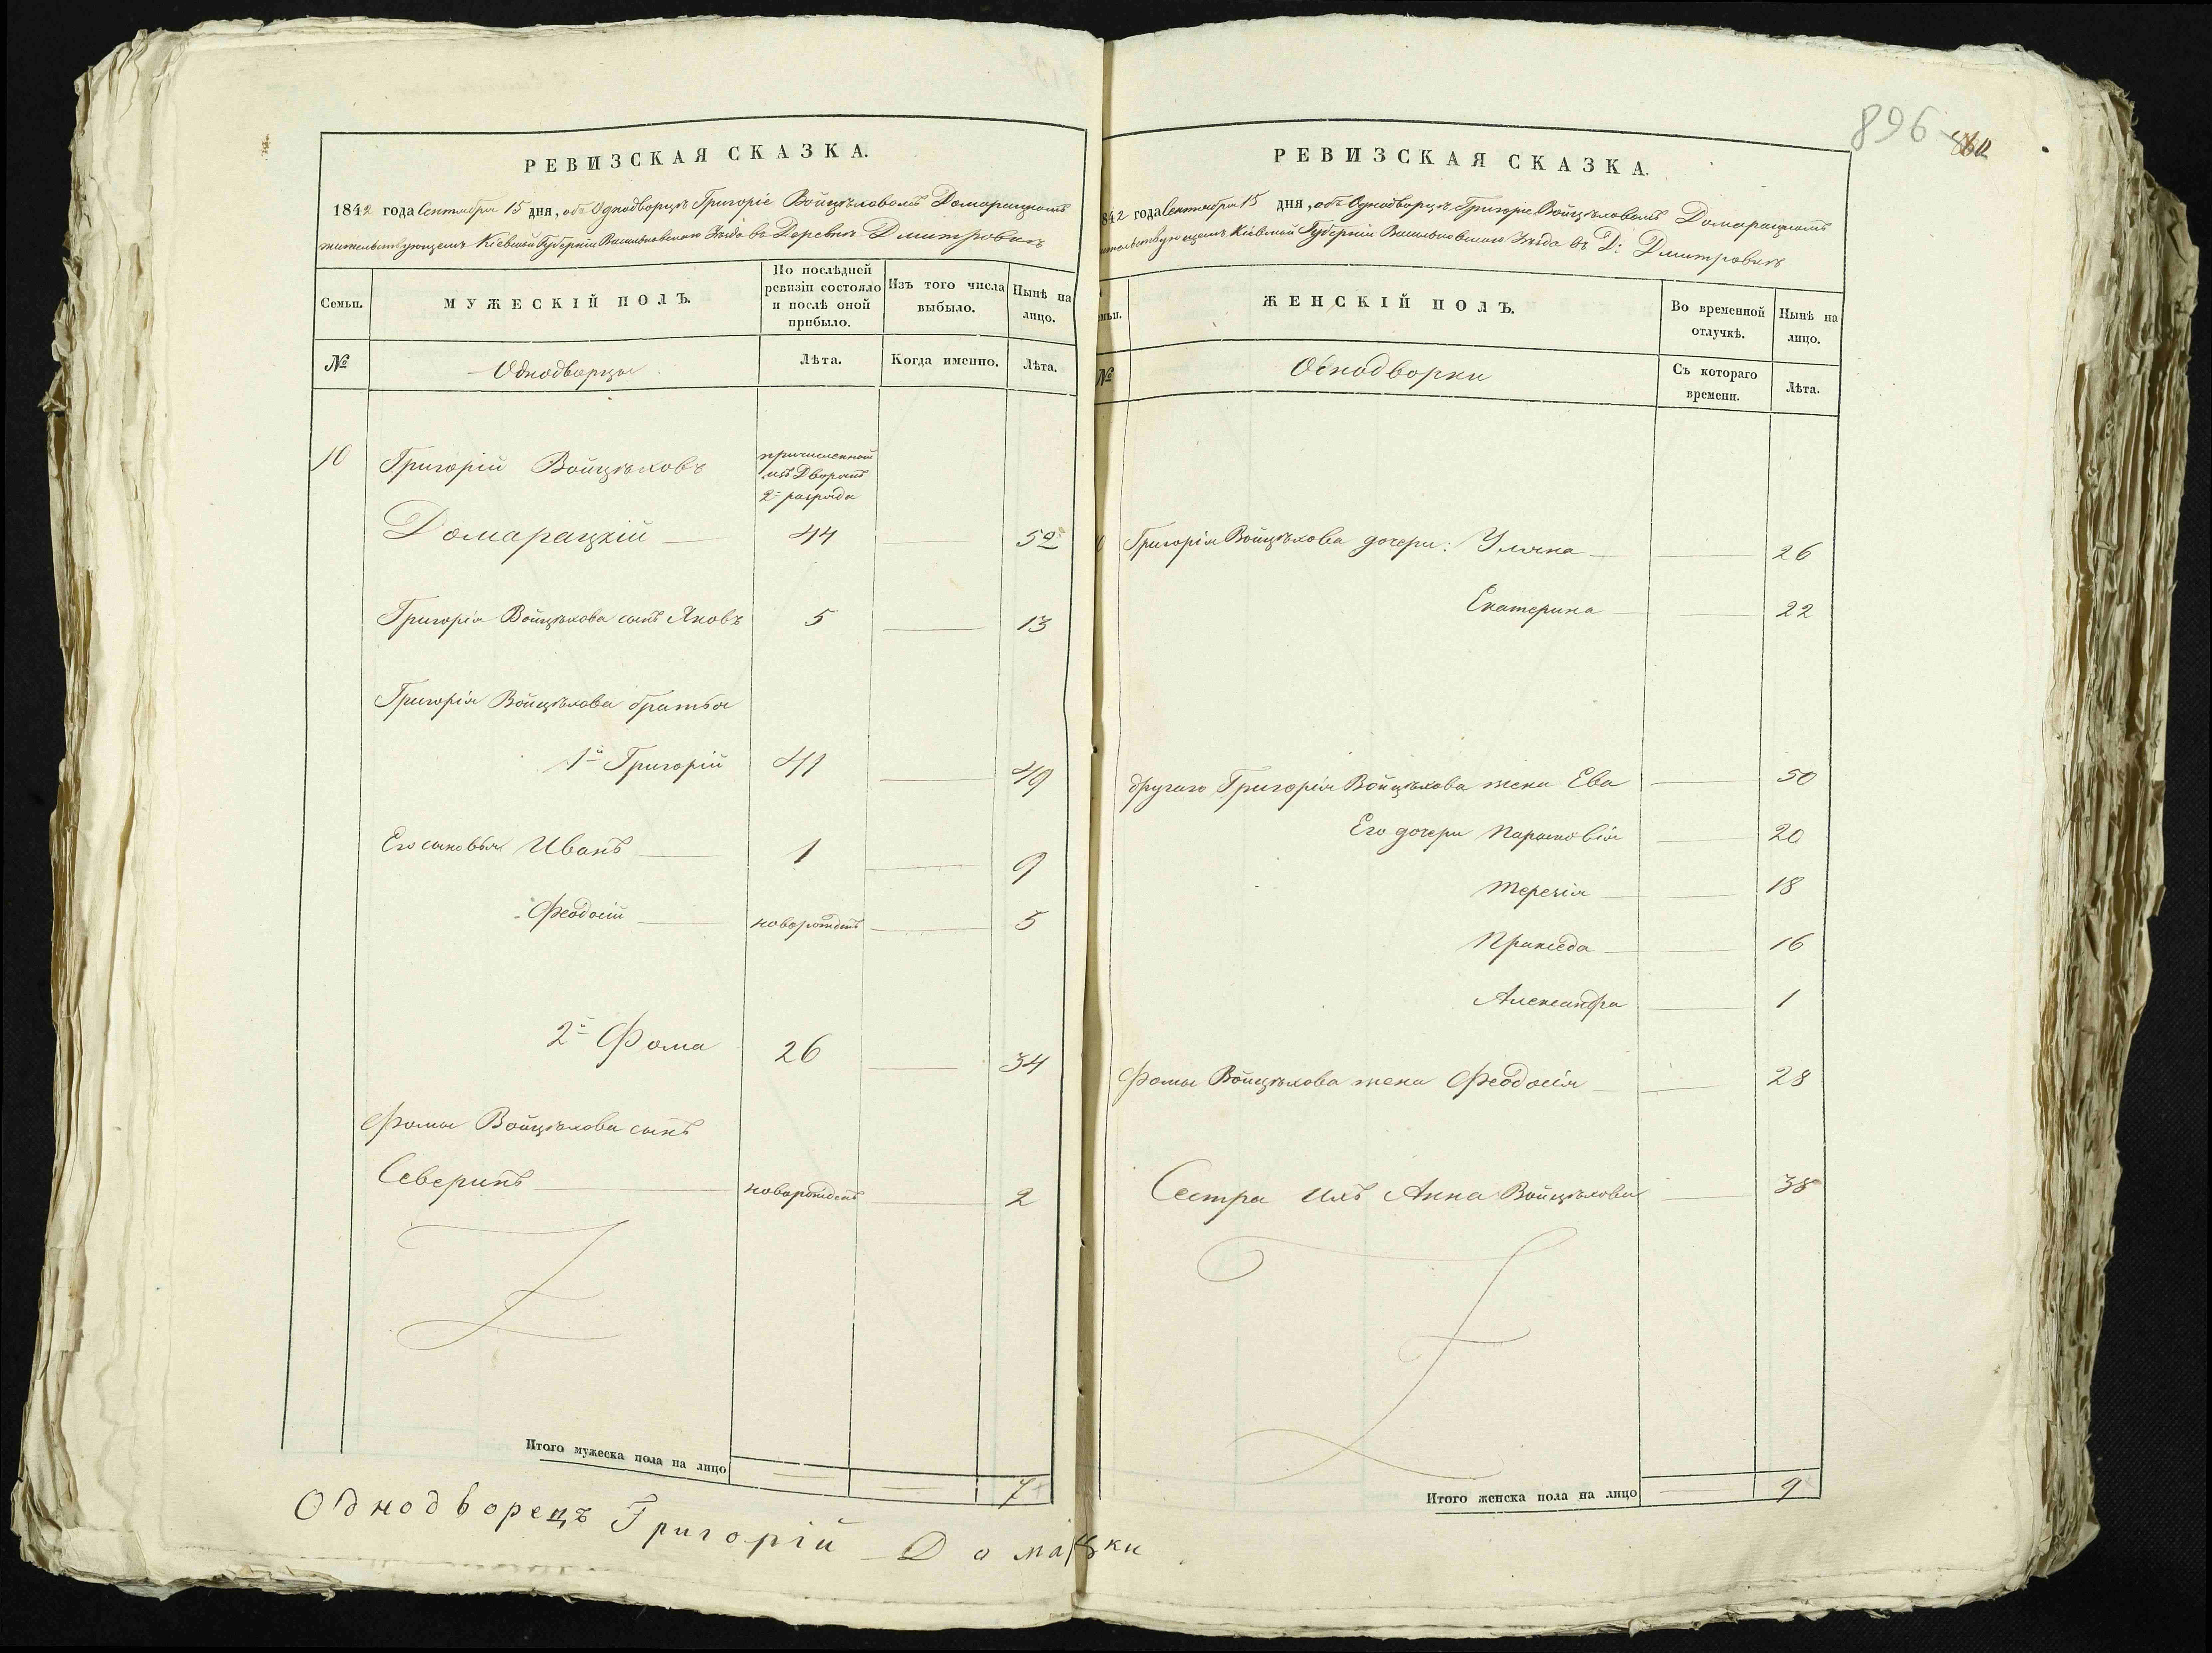 РЕВИЗСКАЯ СКАЗКА.
1842 года Сентября 15 дня, объ Однодворцѣ Григоріе Войцѣховомъ Домарацкомъ
жительствующемъ Кіевской Губерніи Васильковскаго Уѣзда въ Деревнѣ Дмитровкѣ
Семьи.
МУЖЕСКІЙ ПОЛЪ.
По послѣдней ревизіи состояло и послѣ оной прибыло.
Изъ того числа выбыло.
Нынѣ на лицо.
№
Однодворцы
Лѣта.
Когда именно.
Лѣта.
10 Григорій Войцѣховъ причисленной
изъ Дворянъ
2го разряда
Домарацкій 44 52
Григорія Войцѣхова сынъ Яковъ 5 13
Григорія Войцѣхова братья
1й Григорій 41 49
Его сыновья Иванъ 1 9
Феодосій новорожденъ 5
2й Фома 26 34
Фомы Войцѣхова сынъ
Северинъ новорожденъ 2
Итого мужеска пола на лицо 7
Однодворецъ Григорій Домарацки
896
РЕВИЗСКАЯ СКАЗКА.
842 года Сентября 15 дня, объ Однодворцѣ Григоріе Войцѣховомъ Домарацкомъ
жительствующемъ Кіевской Губерніи Васильковскаго Уѣзда въ Д: Дмитровкѣ
ЖЕНСКІЙ ПОЛЪ.
Во временной отлучкѣ.
Нынѣ на лицо.
№
Однодворки
Съ котораго времени.
Лѣта.
Григорія Войцѣхова дочери: Уляна 26
Екатерина 22
другаго Григорія Войцѣхова жена Ева 50
Его дочери Парасковія 20
Терезія 18
Праксeда 16
Александра 1
Фомы Войцѣхова жена Феодосія 28
Сестра ихъ Анна Войцѣхова 38
Итого женска пола на лицо 9